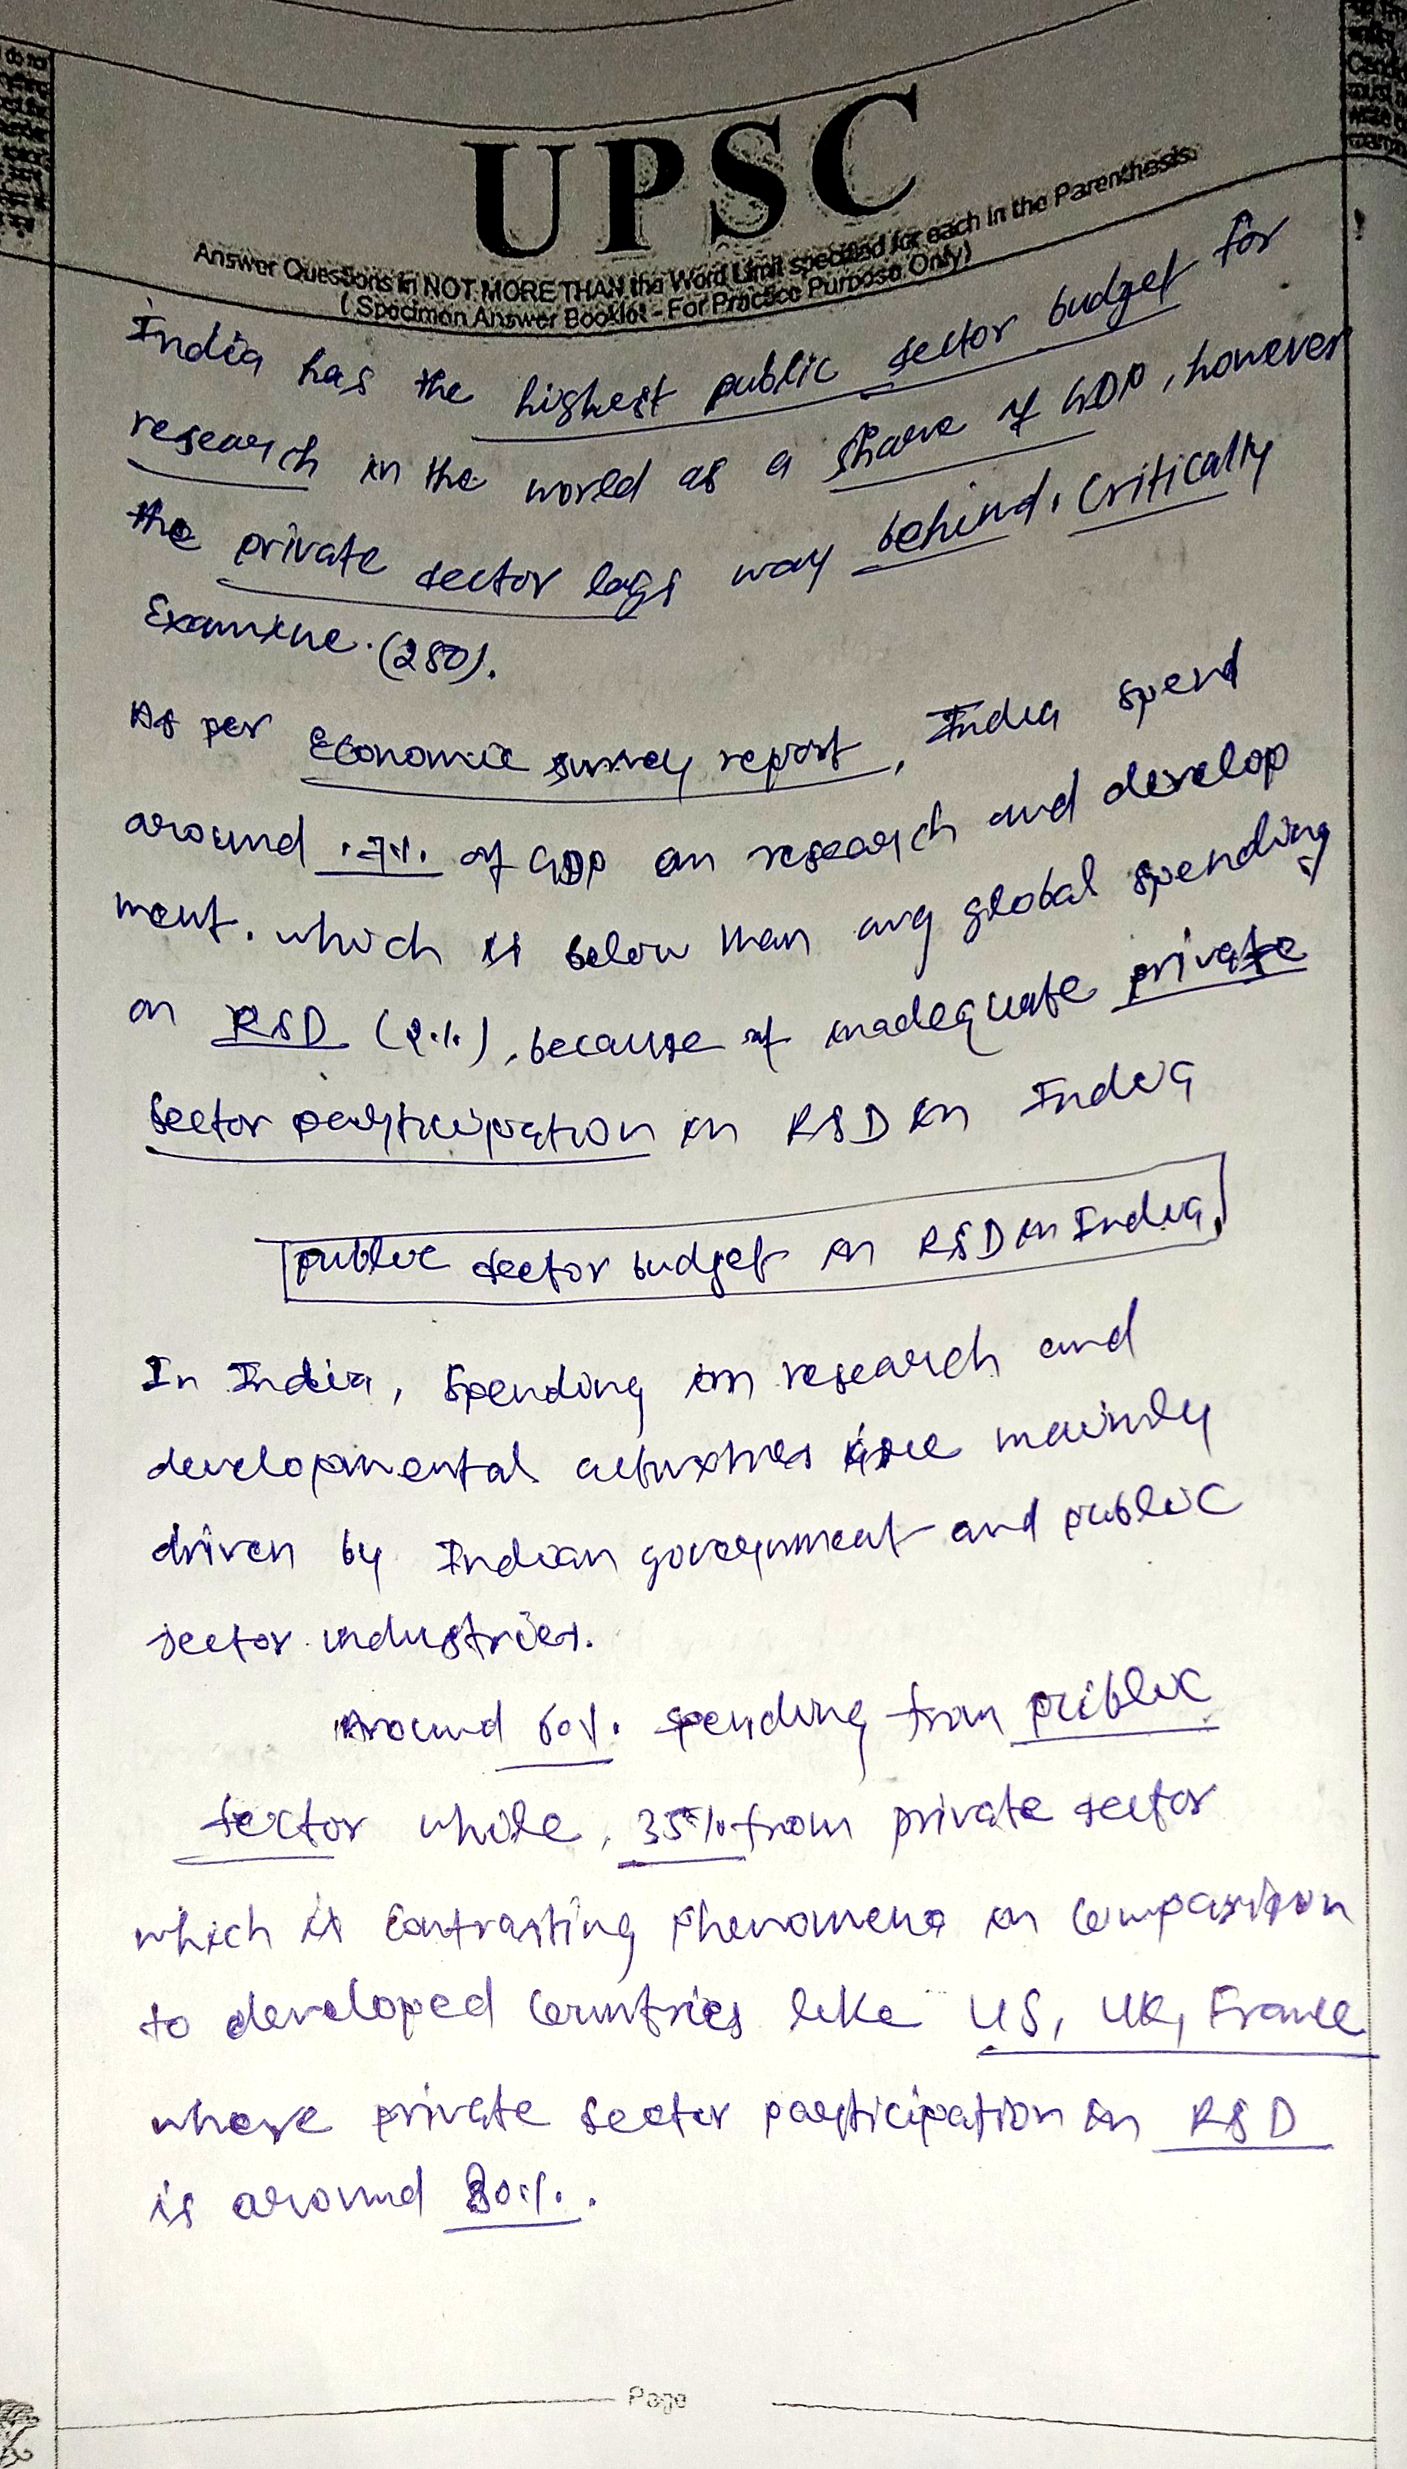 UPSC
Answer Questions in NOT MORE THAN the Word Limit specified for each in the Parenthesis.
( Specimen Answer Booklet - For Practice Purpose Only)
India has the highest public sector budget for
research in the world as a share of GDP, however
the private sector lags way behind. Critically
Examine. (250).
As per Economic survey report, India spend
around .7% of GDP on research and develop
ment. which is below than avg global spending
on R&D (2%), because of inadequate private
sector participation in R&D in India
public sector budget in R&D in India
In India, spending on research and
developmental activities are mainly
driven by Indian government and public
sector industries.
Around 60% spending from public
sector while, 35% from private sector
which is contrasting phenomena in comparision
to developed countries like US, UK, France
where private sector participation in R&D
is around 80%.
Page